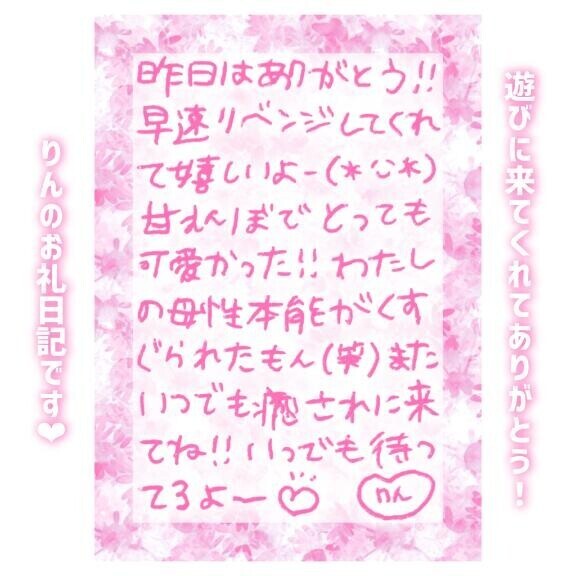 遊びに来てくれてありがとう!
昨日はありがとう!!
早速リベンジしてくれ
て嬉しいよー(*^^*)
甘えんぼでとっても
可愛かった!!わたし
の母性本能がくす
ぐられたもん(笑)また
いつでも癒されに来
てね!!いつでも待っ
てるよー♡
りん
りんのお礼日記です❤